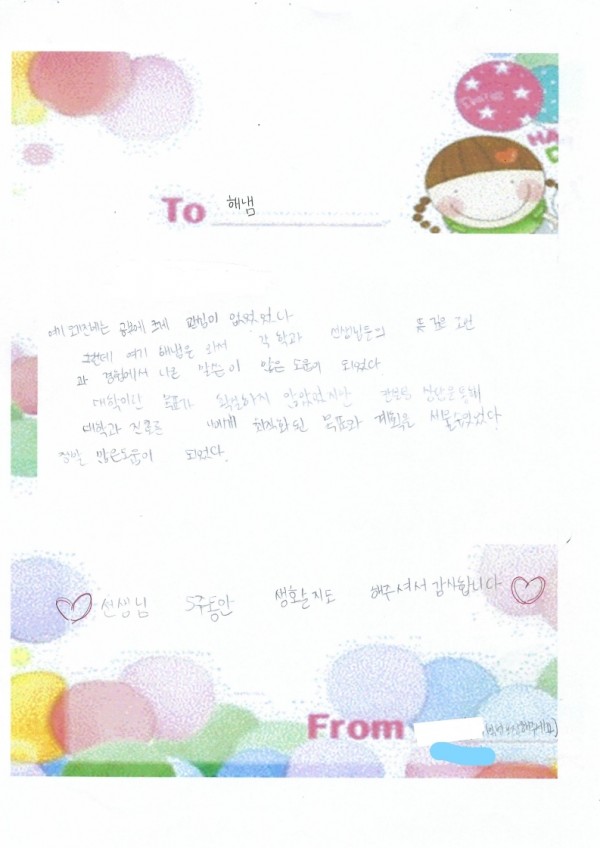 To 해냄
여기 오기전에는 공부에 크게 관심이 없었었다
그런데 여기 해냄을 와서 각 학과 선생님들의 뜻 깊은 조언
과 경험에서 나온 말씀이 많은 도움이 되었다
대학이란 목표가 확실하지 않았었지만 상담을 통해
대학과 진로를 나에게 최적화 된 목표와 계획을 세울수있었다
정말 많은도움이 되었다.
선생님 5주동안 생활지도 해주셔서 감사합니다
From